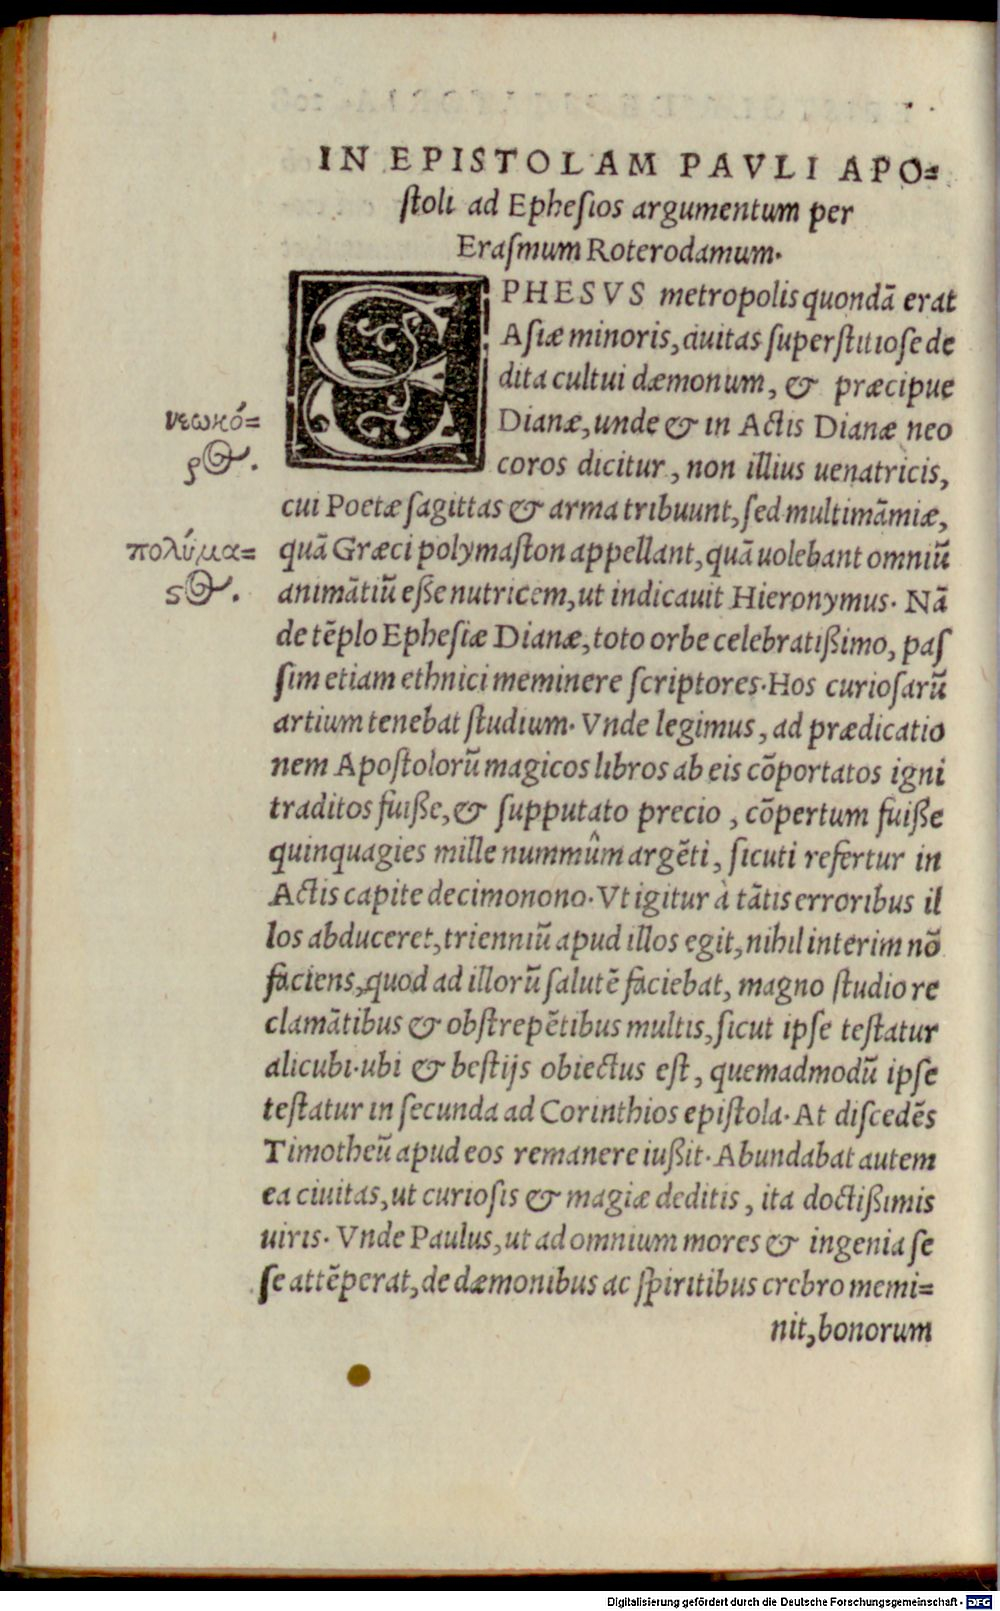 IN EPISTOLAM PAVLI APO=
ſtoli ad Epheſios argumentum per
Eraſmum Roterodamum.
EPHESVS metropolis quondā erat
Aſiæ minoris, ciuitas ſuperſtitioſe de
dita cultui dæmonum, & præcipue
Dianæ, unde & in Actis Dianæ neo
coros dicitur, non illius uenatricis,
cui Poetæ ſagittas & arma tribuunt, ſed multimāmiæ,
quā Græci polymaſton appellant, quā uolebant omniū
animātiū eſſe nutricem, ut indicauit Hieronymus. Nā
de tēplo Epheſiæ Dianæ, toto orbe celebratißimo, paſ
ſim etiam ethnici meminere ſcriptores. Hos curioſarū
artium tenebat ſtudium. Vnde legimus, ad prædicatio
nem Apoſtolorū magicos libros ab eis cōportatos igni
traditos fuiße, & ſupputato precio, cōpertum fuiße
quinquagies mille nummûm argēti, ſicuti refertur in
Actis capite decimonono. Vt igitur à tātis erroribus il
los abduceret, trienniū apud illos egit, nihil interim nō
faciens, quod ad illorū ſalutē faciebat, magno ſtudio re
clamātibus & obſtrepētibus multis, ſicut ipſe teſtatur
alicubi. ubi & beſtijs obiectus eſt, quemadmodū ipſe
teſtatur in ſecunda ad Corinthios epiſtola. At diſcedēs
Timotheū apud eos remanere iußit. Abundabat autem
ea ciuitas, ut curioſis & magiæ deditis, ita doctißimis
uiris. Vnde Paulus, ut ad omnium mores & ingenia ſe
ſe attēperat, de dæmonibus ac ſpiritibus crebro memi=
nit, bonorum
νεωκό=
ρος.
πολύμα=
ϛος.
Digitalisierung gefördert durch die Deutsche Forschungsgemeinschaft - DFG